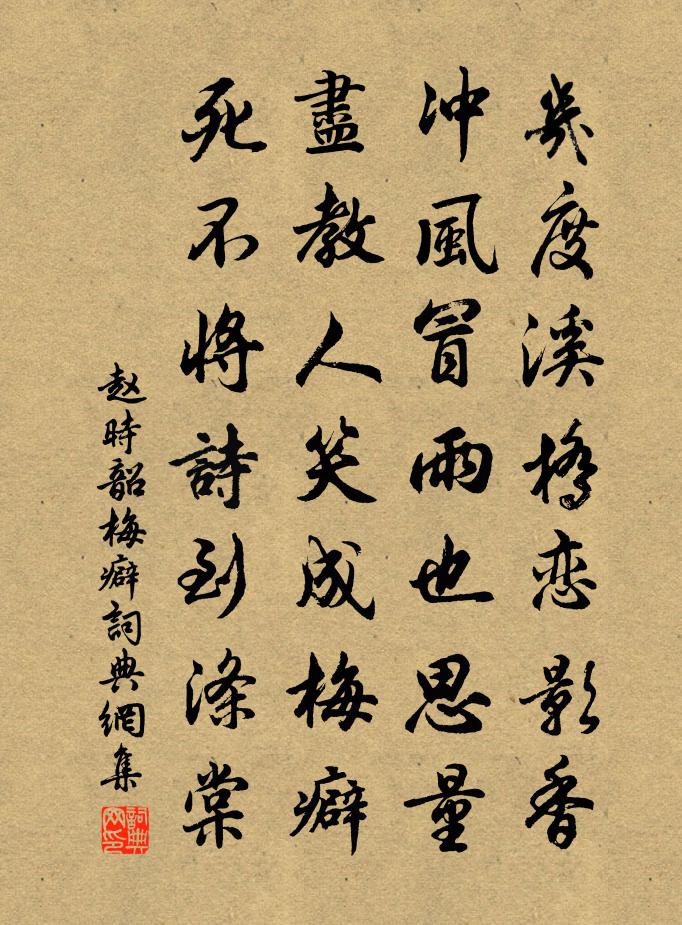 幾度溪橋恋影香
冲風冒雨也思量
盡教人笑成梅癖
死不將詩到涤棠
赵時韶梅癖詞典網集
詞典网印